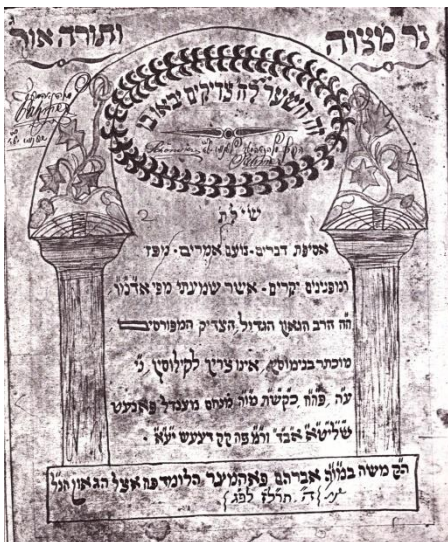 נר מצוה ותורה אור
זה השער לה' צדיקים יבאו בו
אסיפת דברים - נועם אמרים - מפז
ומפנינים יקרים - אשר שמעתי מפי אדמו'
ה"ה הרב הגאון הגדול הצדיק המפורסים
מוכתר בנימוסין, אינו צריך לקילוסין, כי
ע"ה, פה"ח, כקש"ת מו"ה מנחם מענדל פאנעט
שליט"א אבד' ור"מ פה ק"ק דעעש יע"א -
הק' משה במו"ה אברהם פאהמער הלומד פה אצל הגאון הנ"ל
ה' תרל"א לפ"ג